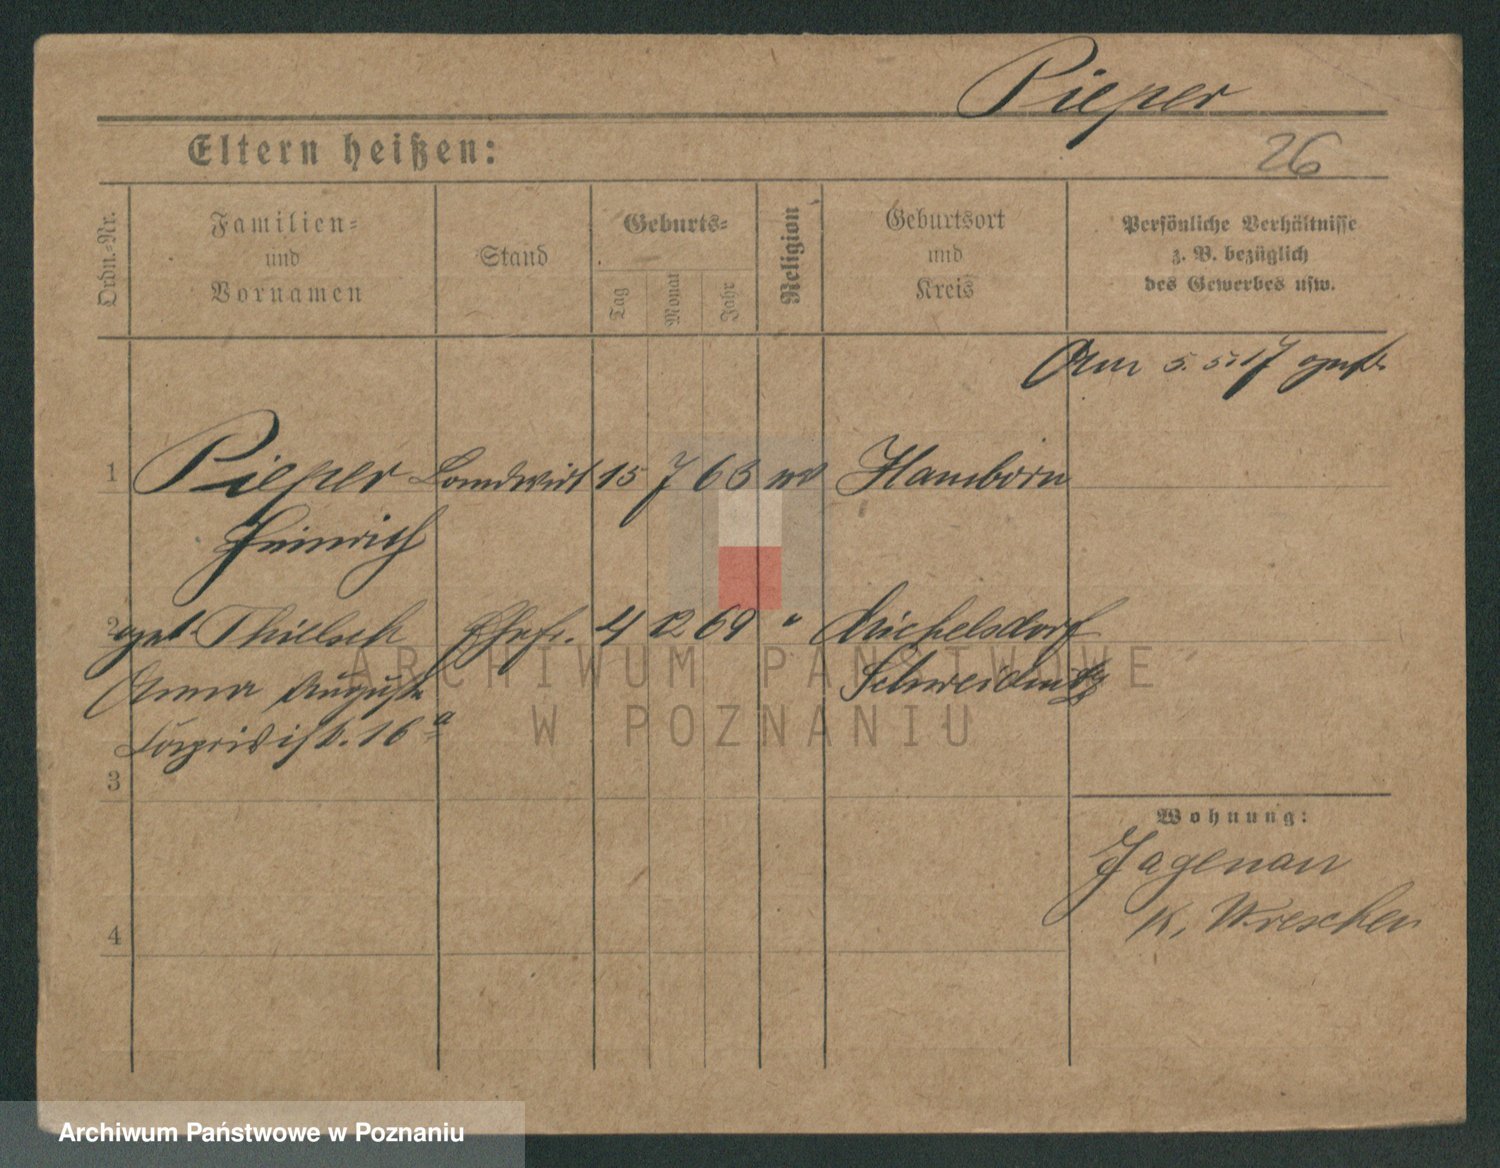 Pieper
Eltern heißen:
26
Ordn.-Nr.
Familien-
und
Vornamen
Stand
Geburts-
Tag
Monat
Jahr
Religion
Geburtsort
und
Kreis
Persönliche Verhältnisse
z. B. bezüglich
des Gewerbes usw.
Am 5. 5. 17
1 Pieper Landwirt 15 7 63 Hamborn
Heinrich
2 Ehefr. 4 12 69 " Michelsdorf
Anna Auguste Schweidnitz
16a
3
Wohnung:
Jagenau
K. Wreschen
4
ARCHIWUM PAŃSTWOWE
W POZNANIU
Archiwum Państwowe w Poznaniu